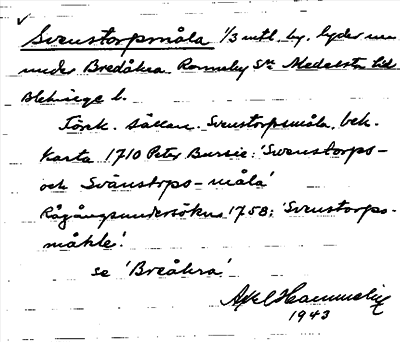 Svenstorpsmåla 1/3 mtl. by. lyder nu
under Bredåkra Ronneby Sn Medelsta hd
Blekinge l.
Förek. sällan. Svenstorpsmåla, bek.
Karta 1710 Peter Bursie: 'Svenstorps-
och Svänstrps-måla'
Rågångsundersökn. 1758: 'Svenstorps-
måhle'.
se 'Breåkra'
Axel
1943